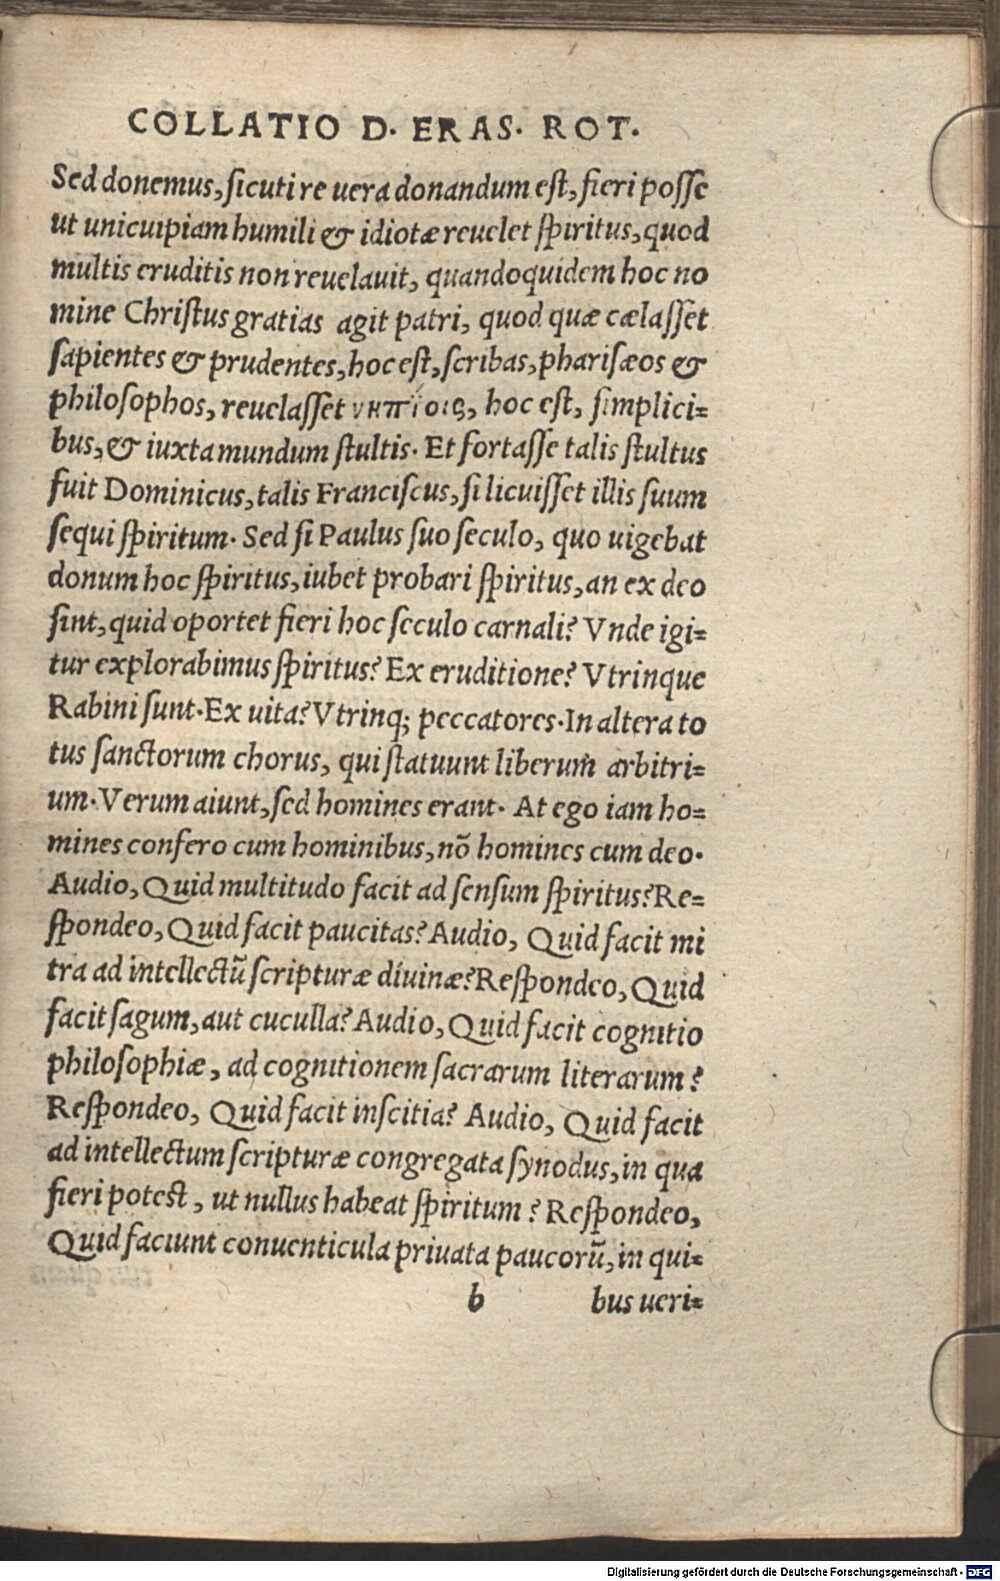 COLLATIO D. ERAS. ROT.
Sed donemus, ſicuti re uera donandum eſt, fieri poſſe
ut unicuipiam humili & idiotæ reuelet ſpiritus, quod
multis eruditis non reuelauit, quandoquidem hoc no
mine Chriſtus gratias agit patri, quod quæ cælaſſet
ſapientes & prudentes, hoc eſt, ſcribas, phariſæos &
philoſophos, reuelaſſet νηπίοις, hoc eſt, ſimplici=
bus, & iuxta mundum ſtultis. Et fortaſſe talis ſtultus
fuit Dominicus, talis Franciſcus, ſi licuiſſet illis ſuum
ſequi ſpiritum. Sed ſi Paulus ſuo ſeculo, quo uigebat
donum hoc ſpiritus, iubet probari ſpiritus, an ex deo
ſint, quid oportet fieri hoc ſeculo carnali? Vnde igi=
tur explorabimus ſpiritus? Ex eruditione? Vtrinque
Rabini ſunt. Ex uita? Vtrinq; peccatores. In altera to
tus ſanctorum chorus, qui ſtatuunt liberum arbitri=
um. Verum aiunt, ſed homines erant. At ego iam ho=
mines confero cum hominibus, nō homines cum deo.
Audio, Quid multitudo facit ad ſenſum ſpiritus? Re=
ſpondeo, Quid facit paucitas? Audio, Quid facit mi
tra ad intellectū ſcripturæ diuinæ? Reſpondeo, Quid
facit ſagum, aut cuculla? Audio, Quid facit cognitio
philoſophiæ, ad cognitionem ſacrarum literarum?
Reſpondeo, Quid facit inſcitia? Audio, Quid facit
ad intellectum ſcripturæ congregata ſynodus, in qua
fieri poteſt, ut nullus habeat ſpiritum? Reſpondeo,
Quid faciunt conuenticula priuata paucorū, in qui=
b bus ueri=
Digitalisierung gefördert durch die Deutsche Forschungsgemeinschaft - DFG